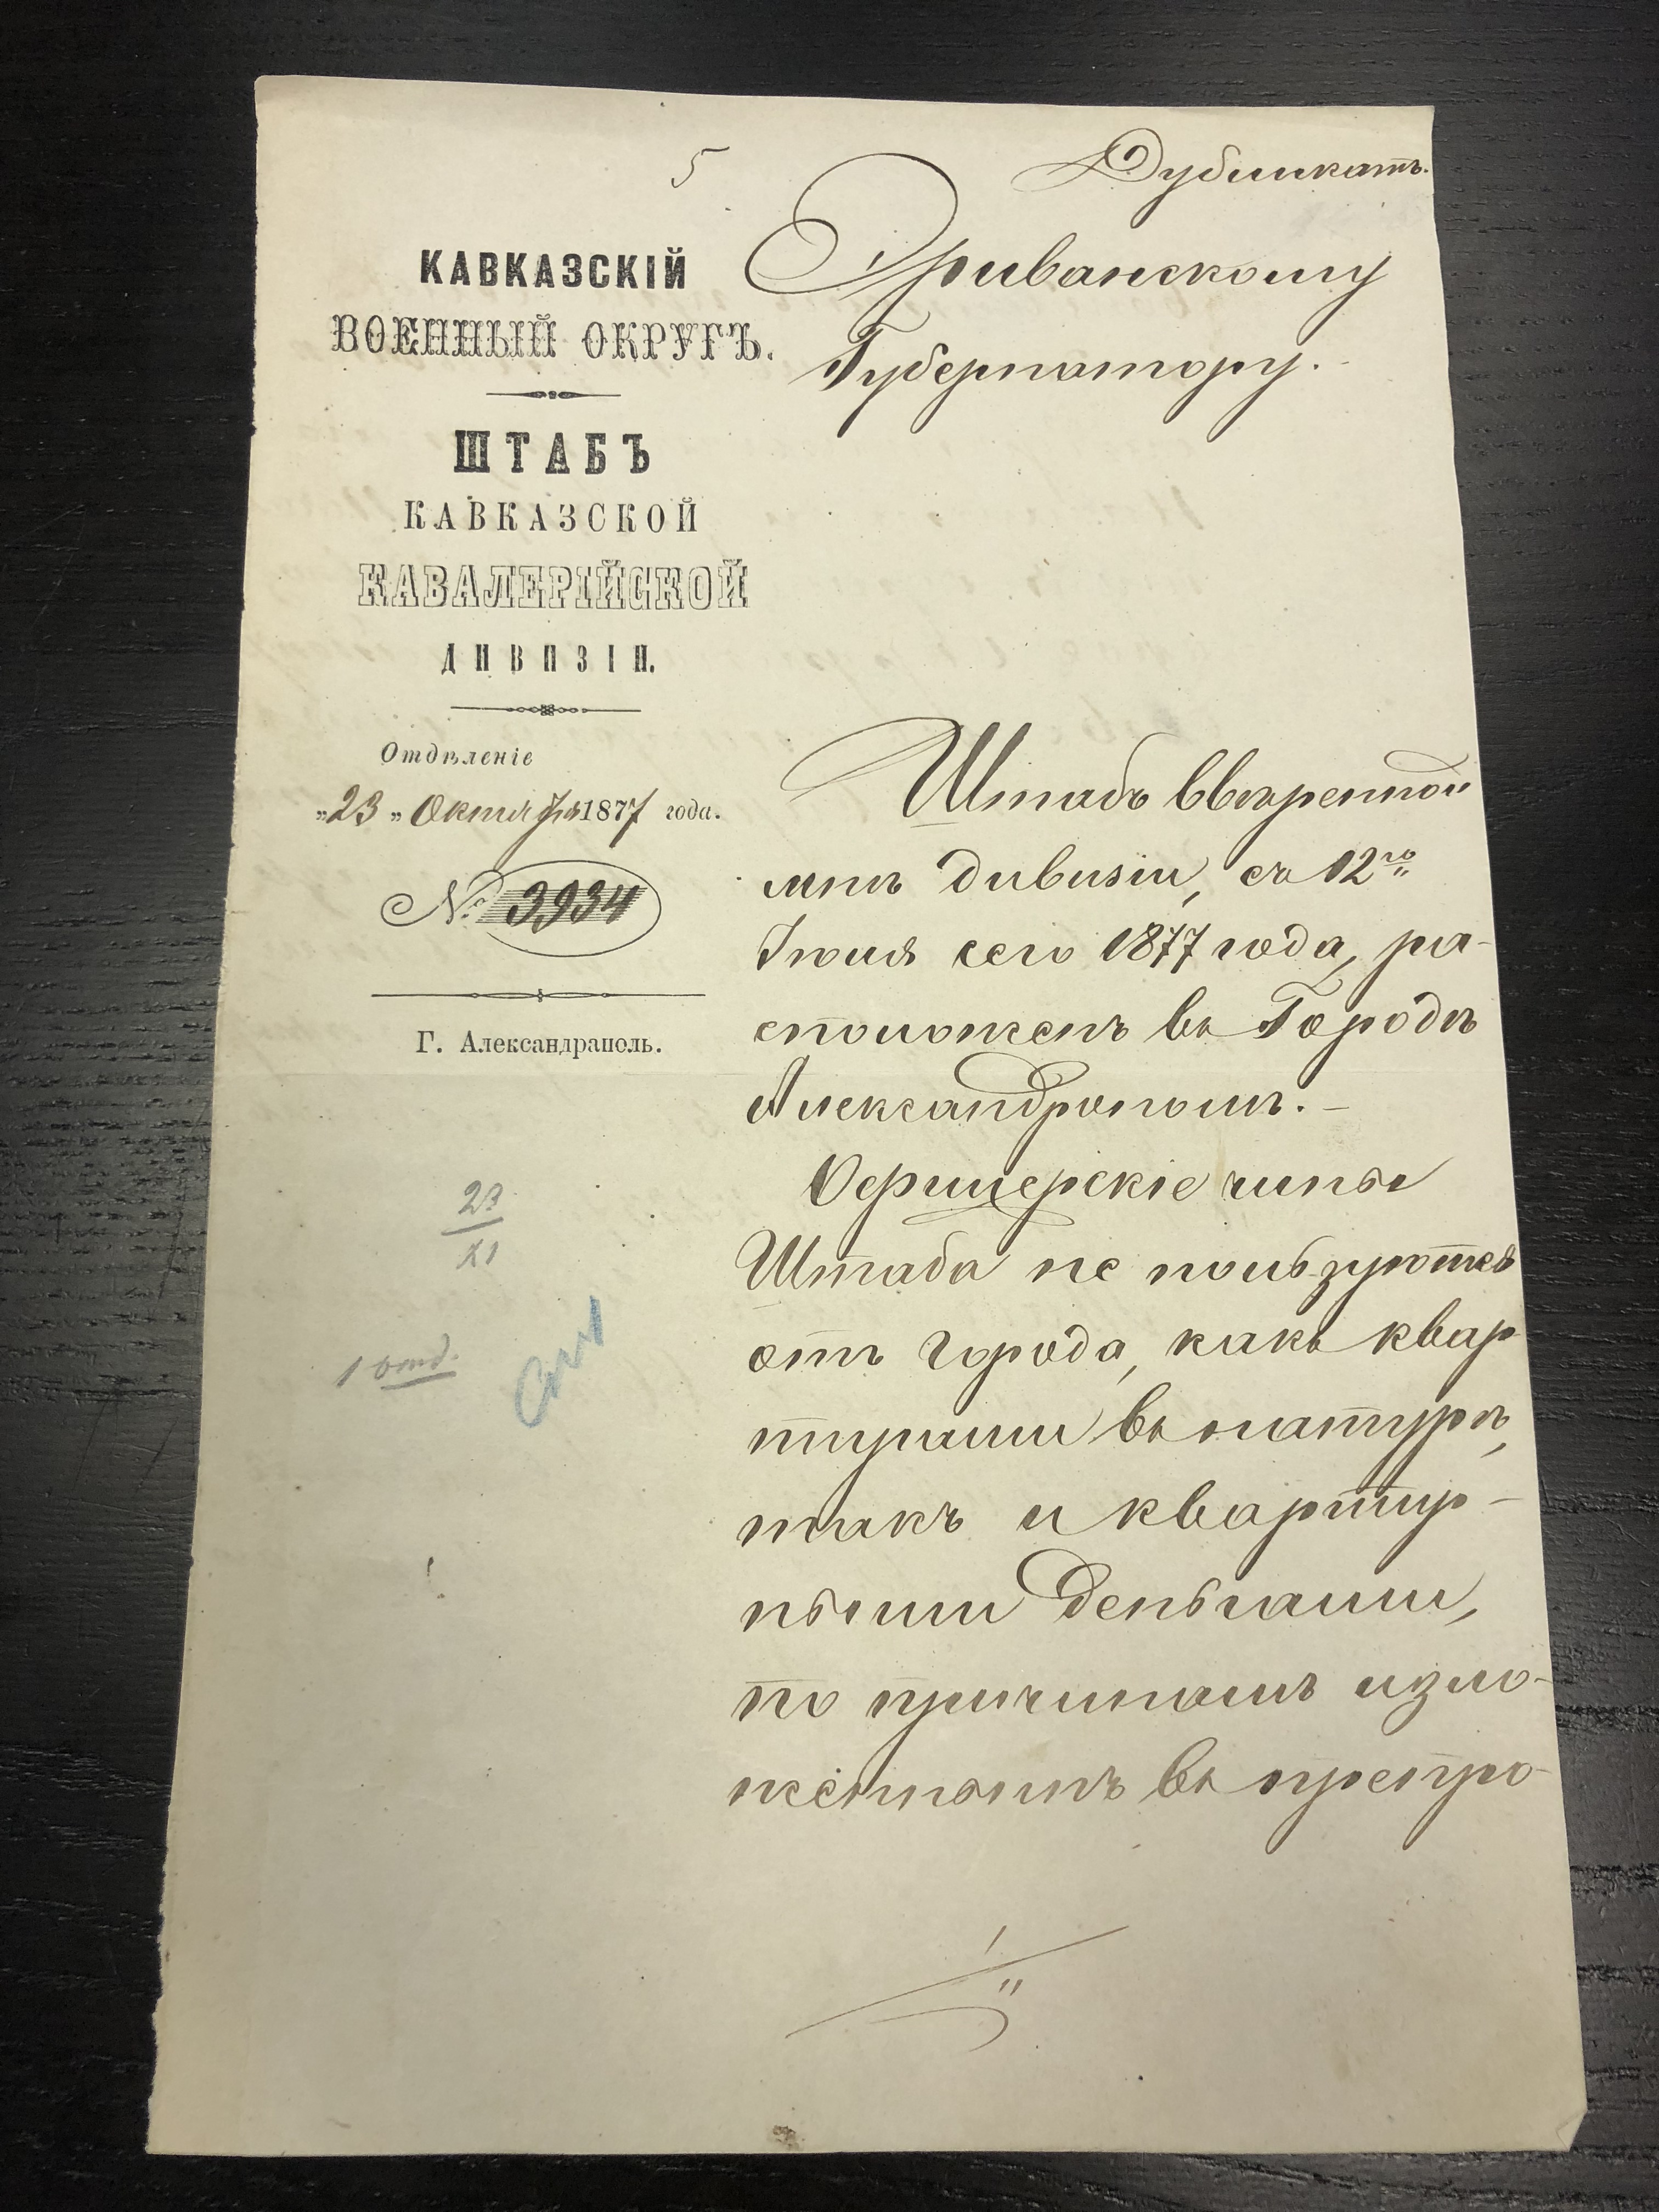 5
Дубликатъ.
КАВКАЗСКІЙ
ВОЕННЫЙ ОКРУГЪ.
ШТАБЪ
КАВКАЗСКОЙ
КАВАЛЕРІЙСКОЙ
ДИВИЗІИ.
Отдѣленіе
„23„ Октября 1877 года.
№ 3934
Г. Александраполь.
23
XI
1 отд.
Эриванскому
Губернатору.
Штабъ ввѣренной
мнѣ дивизіи, съ 12го
Іюля сего 1877 года, ра-
сположенъ въ Городѣ
Александрополѣ.
Офицерскіе чины
Штаба не пользуются
отъ города, какъ квар
тирами въ натурѣ,
такъ и квартир-
ными деньгами,
по причинамъ изло-
женнымъ въ препро-